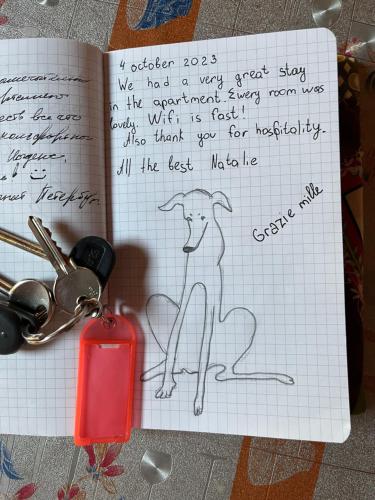 есть все что
Яндекс,
4 october 2023
We had a very great stay
in the apartment. Ewery room was
lovely. Wifi is fast!
Also thank you for hospitality.
All the best Natalie
Grazie mille